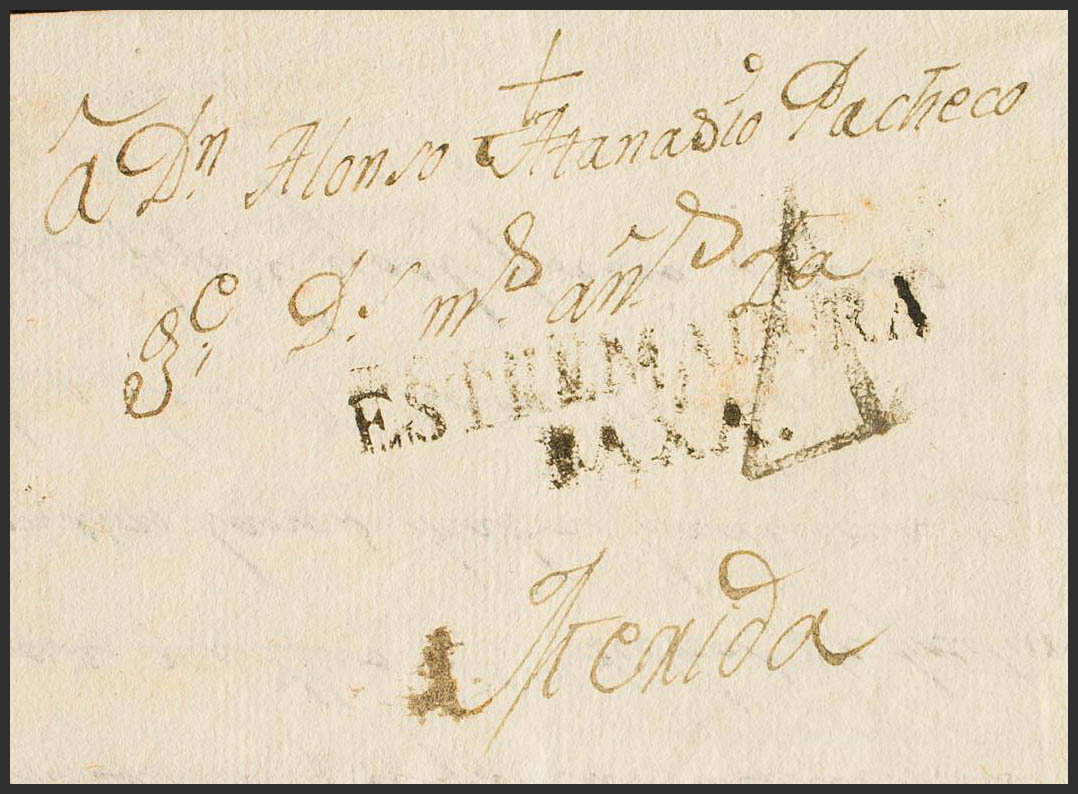 †
â Dn Alonso Atanasio Pacheco
gᵉ Dˢ mˢ anˢ
ESTREMADURA
BAXA.
Merida